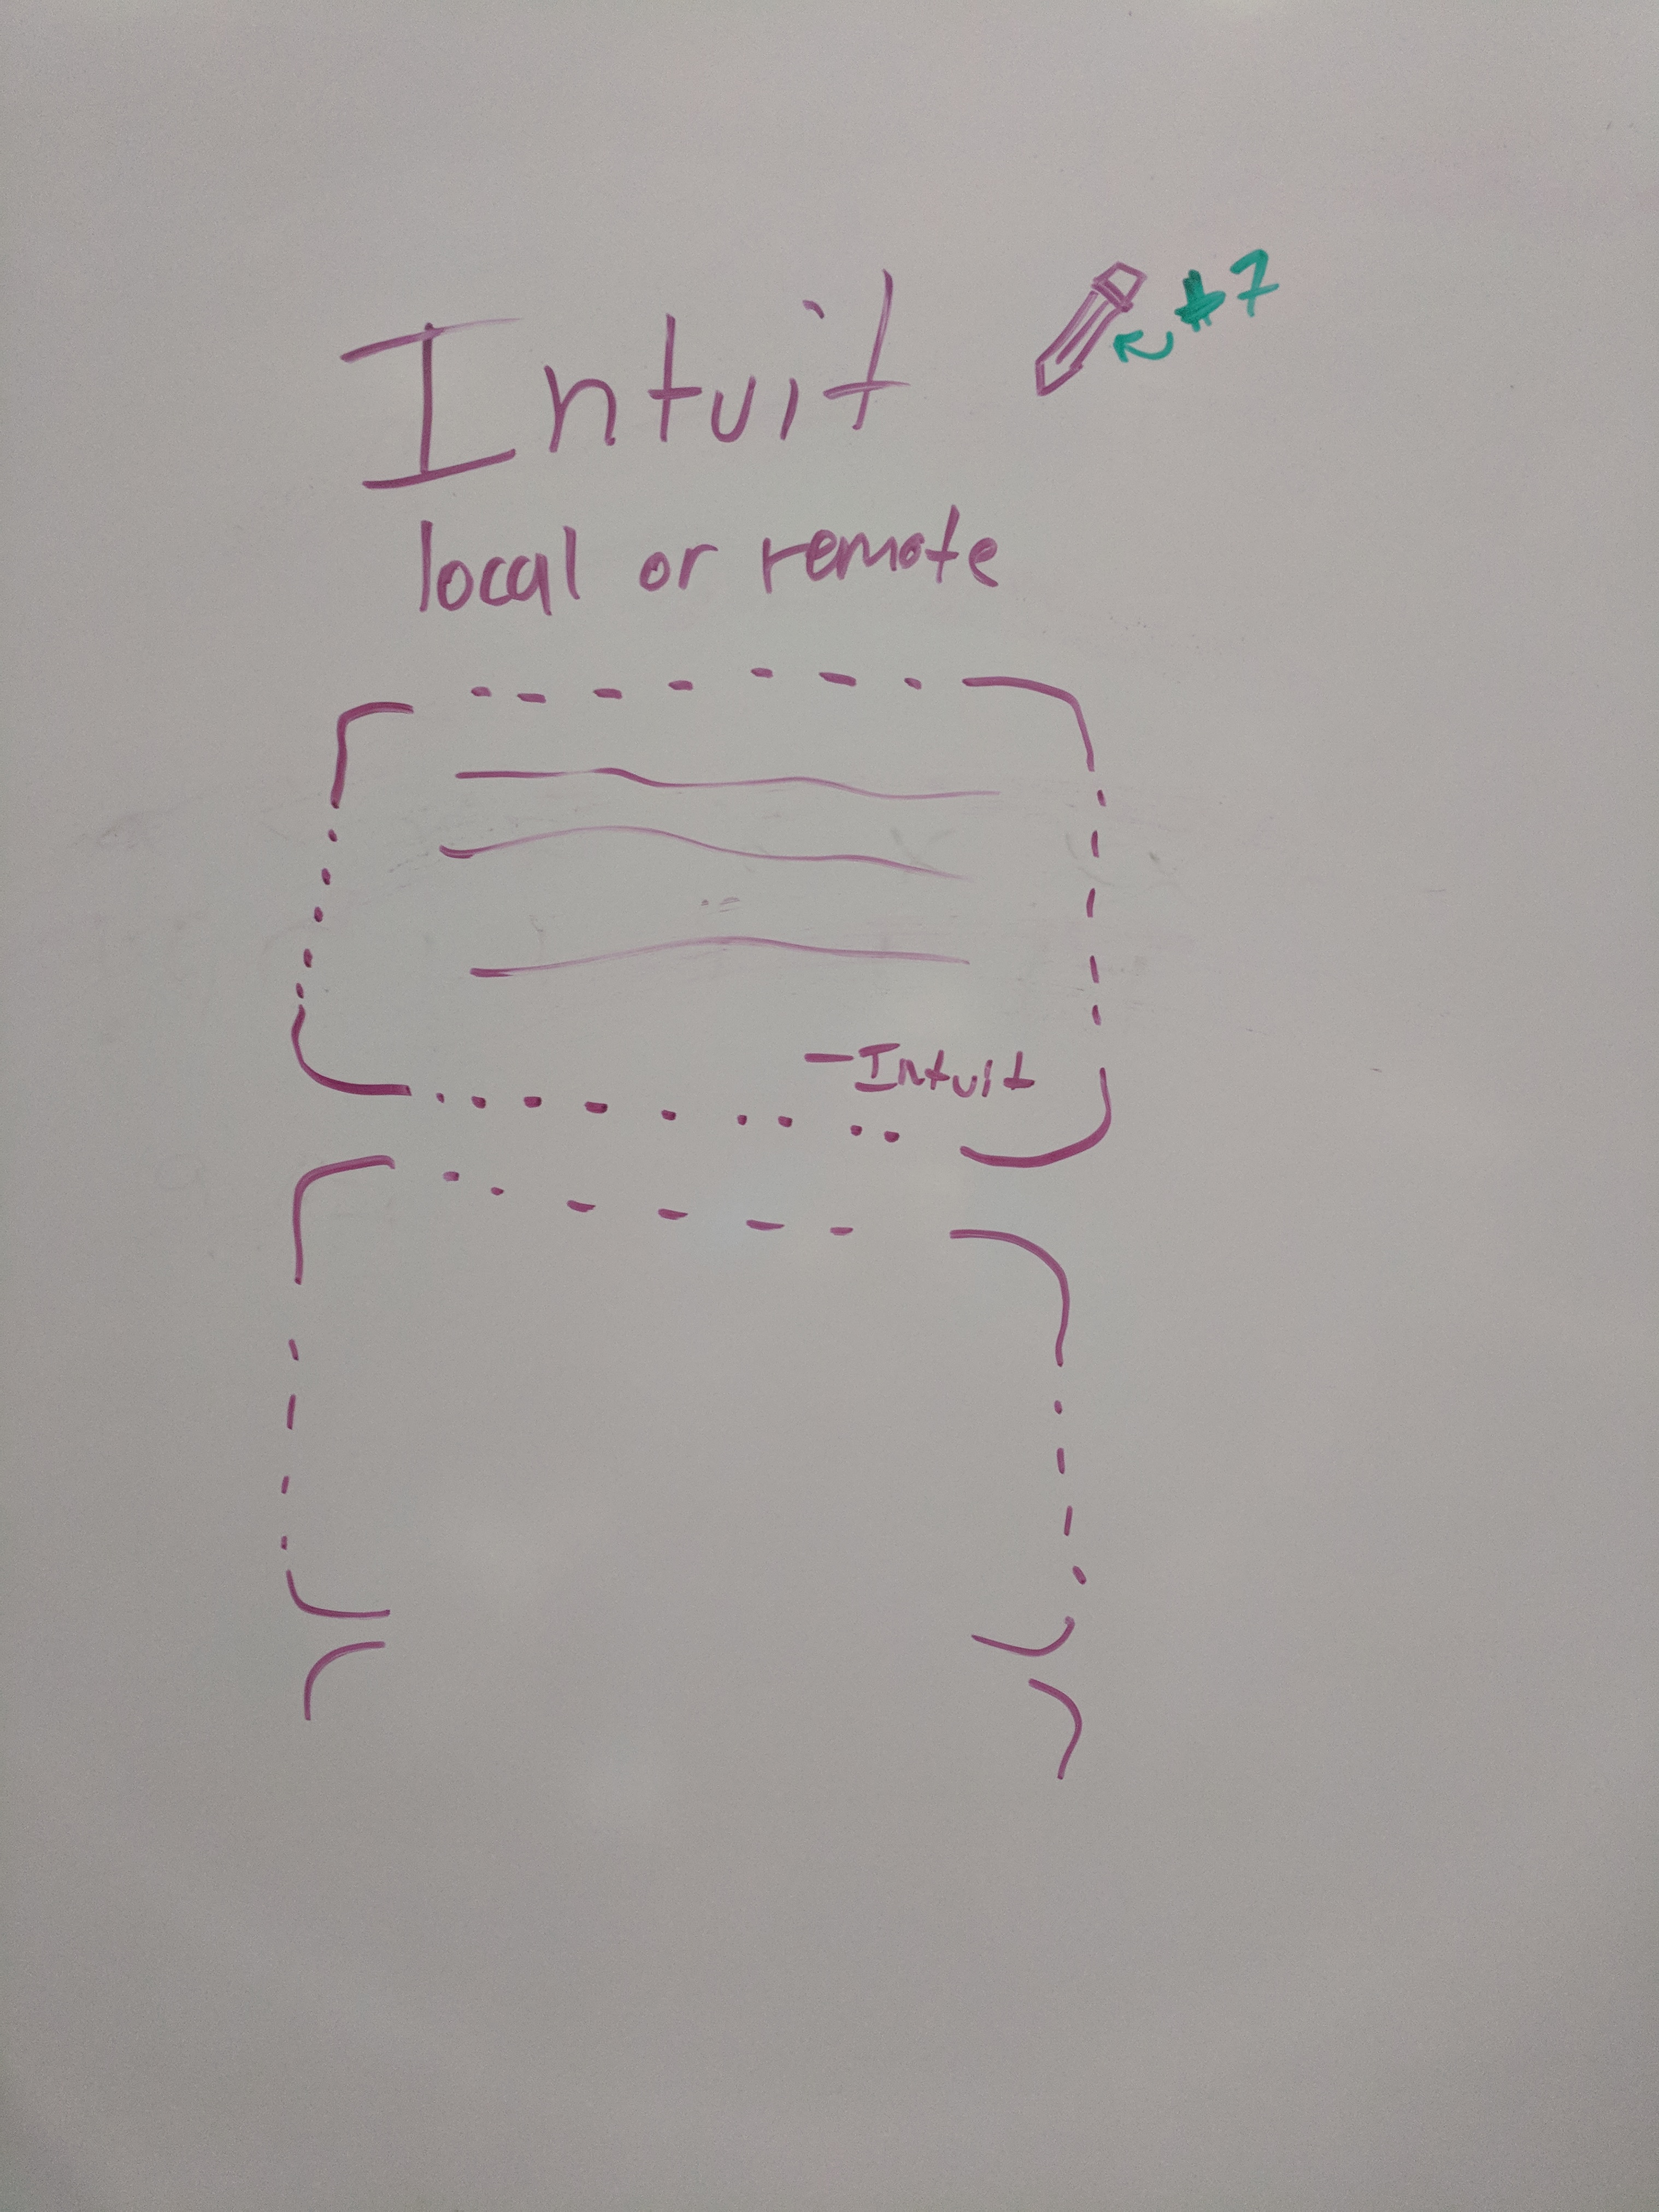 Intuit
#7
local or remote
- Intuit